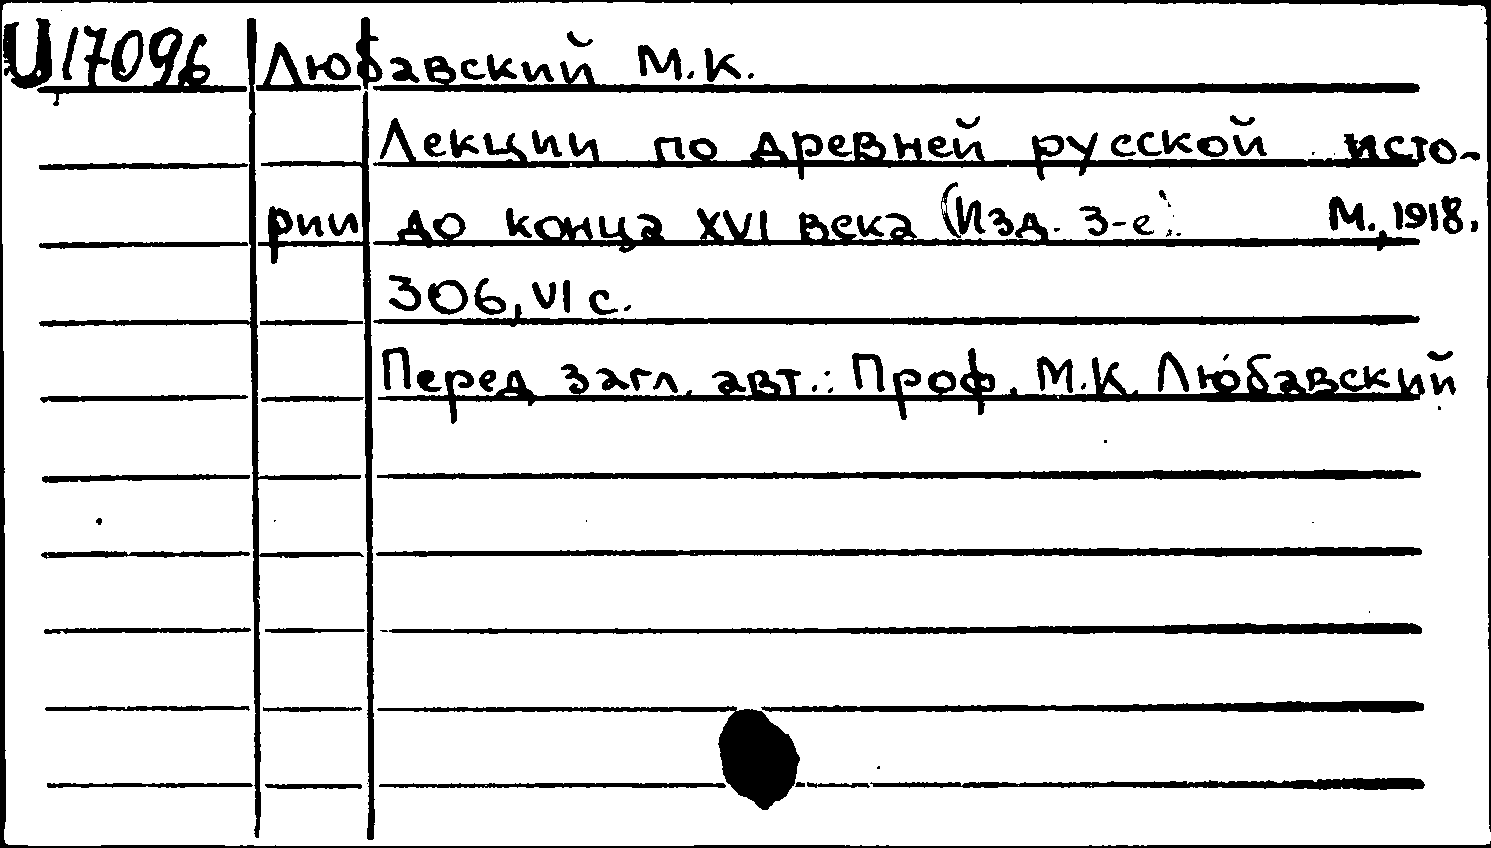 U17096 Любавский М.К.
Лекции по древней русской исто-
рии до конца XVI века (Изд. 3-е). М., 1918.
306, VI с.
Перед загл. авт.: Проф. М.К. Любавский